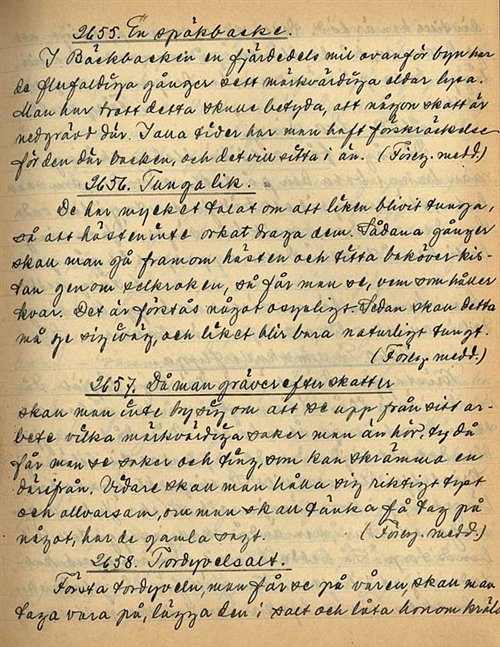 2655. En spökbacke.
I Bäckbacken en fjärdedels mil ovanför byn har
de flerfaldiga gånger sett märkvärdiga eldar lysa.
Man har trott detta skulle betyda, att någon skatt är
nedgrävd där. I alla tider har man haft förskräckelse
för den där backen, och det vill sitta i än. (Föreg. medd.)
2656. Tunga lik.
De har mycket talat om att liken blivit tunga,
så att hästen inte orkat draga dem. Sådana gånger
skall man gå framom hästen och titta baköver kis-
tan genom selkroken, så får man se, vem som håller
kvar. Det är förstås något osynligt. Sedan skall detta
må ge sig iväg, och liket blir bara naturligt tungt.
(Föreg. medd.)
2657. Då man gräver efter skatter
skall man inte bry sig om att se upp från sitt ar-
bete vilka märkvärdiga saker man än hör, ty då
får man se saker och ting, som kan skrämma en
därifrån. Vidare skall man hålla sig riktigt tyst
och allvarsam, om man skall tänka få tag på
något, har de gamla sagt. (Föreg. medd.)
2658. Tordyvelsalt.
Första tordyveln, man får se på våren, skall man
taga vara på, lägga den i salt och låta honom kräla